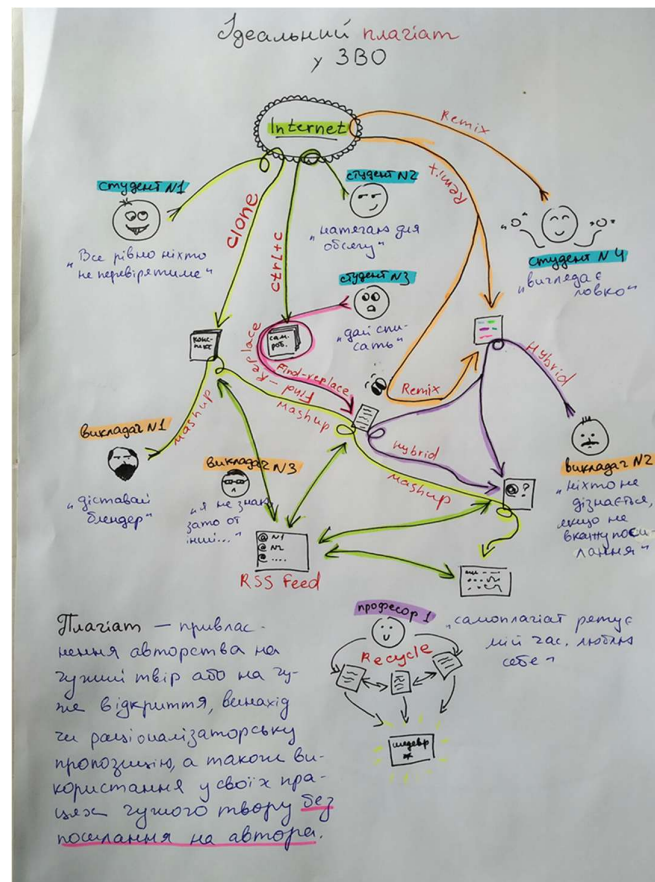 Ідеальний плагіат
у ЗВО
Internet
Remix
Remix
студент N1
"Все рівно ніхто
не перевірятиме"
clone
ctrl+c
студент N2
"натягаю для
обсягу"
студент N3
"дай спи-
сать"
студент N4
"виглядає
ловко"
конс-
пект
сам.
роб.
Find-replace
Find-replace
Remix
Hybrid
викладач N1
"діставай
блендер"
Mashup
Mashup
Hybrid
Mashup
@?
викладач N3
"я не знаю
зато от
інші..."
викладач N2
"ніхто не
дізнається,
якщо не
вкажу поси-
лання"
@ N1
@ N2
@ ....
RSS Feed
професор 1
"самоплагіат рятує
мій час, люблю
себе"
Recycle
шедевр
Плагіат — привлас-
нення авторства на
чужий твір або на чу-
же відкриття, винахід
чи раціоналізаторську
пропозицію, а також ви-
користання у своїх пра-
цях чужого твору без
посилання на автора.